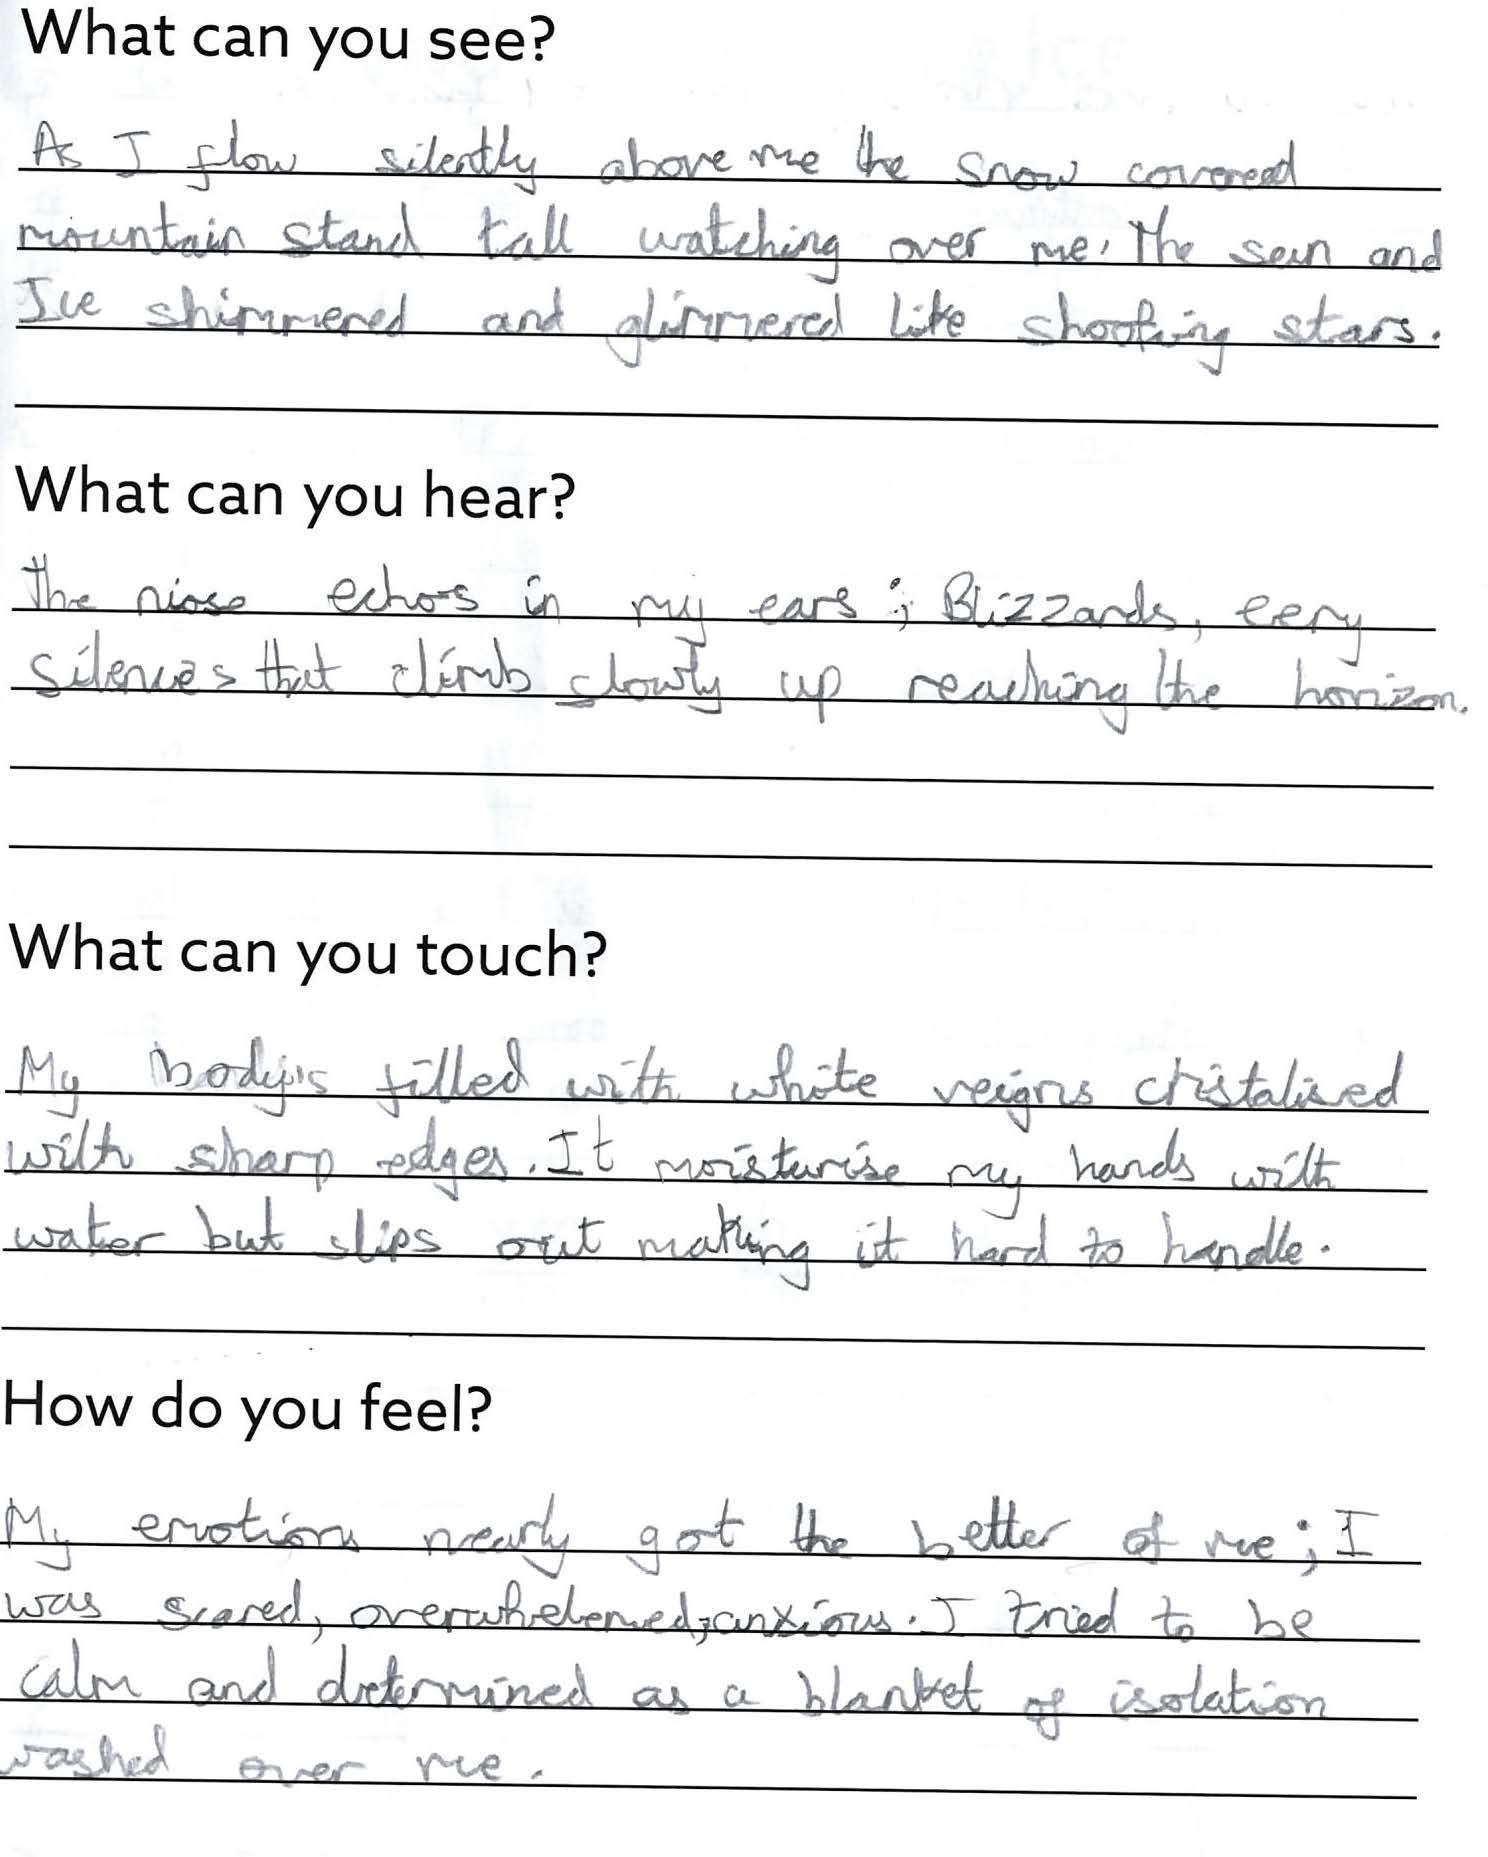 What can you see?
As I flow silently above me the snow covered
mountain stand tall watching over me. The sun and
Ice shimmered and glimmered like shooting stars.
What can you hear?
The niose echo's in my ears; Blizzards, eery
silences that climb slowly up reaching the horizon.
What can you touch?
My body's filled with white veigns christalised
with sharp edges. It moisturise my hands with
water but slips out making it hard to handle.
How do you feel?
My emotions nearly got the better of me; I
was scared, overwhelemed, anxious. I tried to be
calm and determined as a blanket of isolation
washed over me.